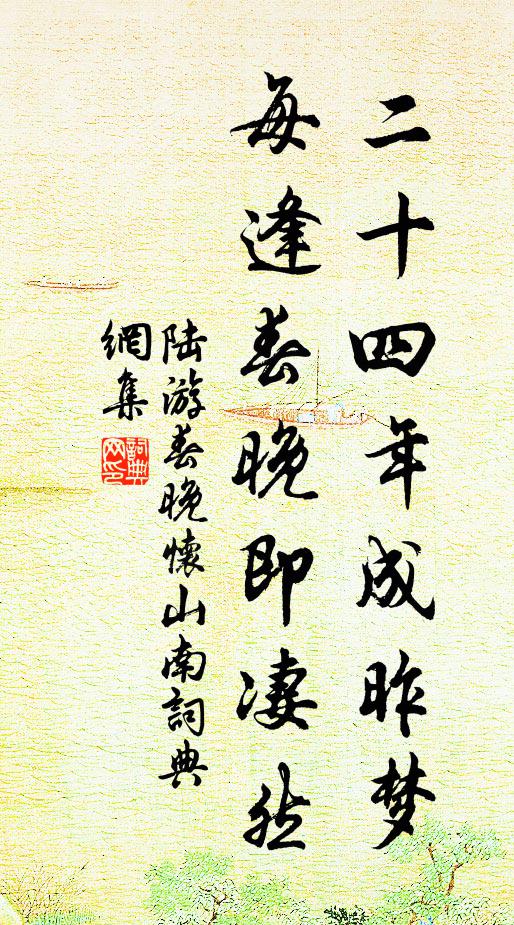 二十四年成昨梦
每逢春晚即凄然
陆游春晚懷山南詞典
網集
詞典
网印